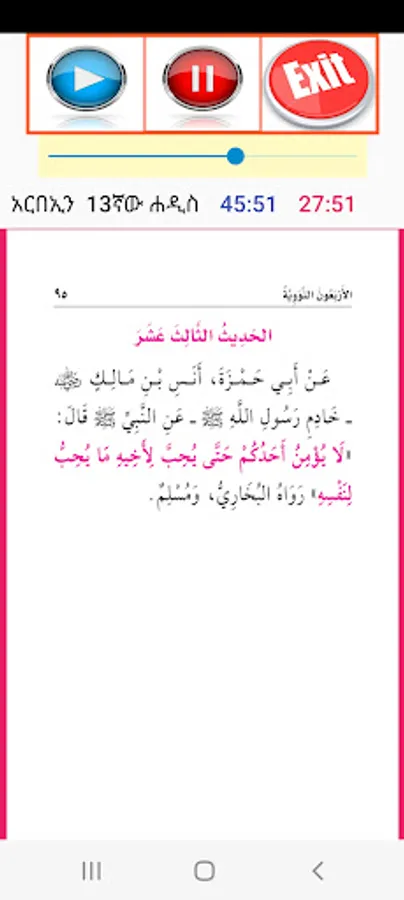 Exit
አርበኢን 13ኛው ሐዲስ 45:51 27:51
الأَرْبَعُونَ النَّوَوِيَّةُ ٩٥
الحَدِيثُ الثَّالِثَ عَشَرَ
عَنْ أَبِي حَمْزَةَ، أَنَسِ بْنِ مَالِكٍ ﵁
ـ خَادِمِ رَسُولِ اللَّهِ ﷺ ـ عَنِ النَّبِيِّ ﷺ قَالَ:
«لَا يُؤْمِنُ أَحَدُكُمْ حَتَّى يُحِبَّ لِأَخِيهِ مَا يُحِبُّ
لِنَفْسِهِ» رَوَاهُ البُخَارِيُّ، وَمُسْلِمٌ.